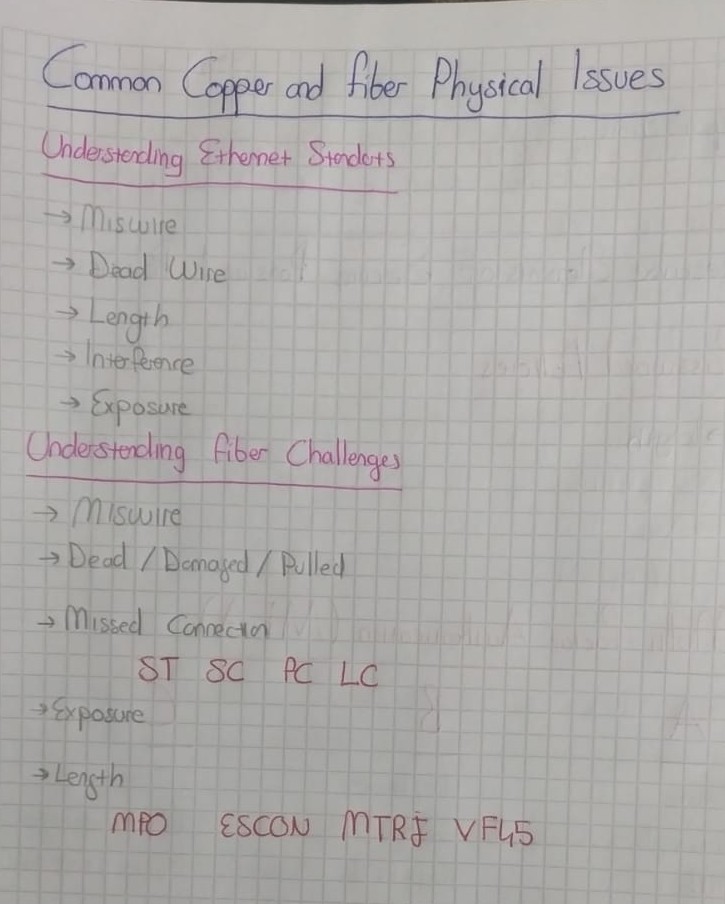 Common Copper and fiber Physical Issues
Understanding Ethernet Standarts
→ Miswire
→ Dead Wire
→ Length
→ Interference
→ Exposure
Understanding fiber Challenges
→ Miswire
→ Dead / Damaged / Pulled
→ Missed Connection
ST SC PC LC
→ Exposure
→ Length
MPO ESCON MTRJ VF45